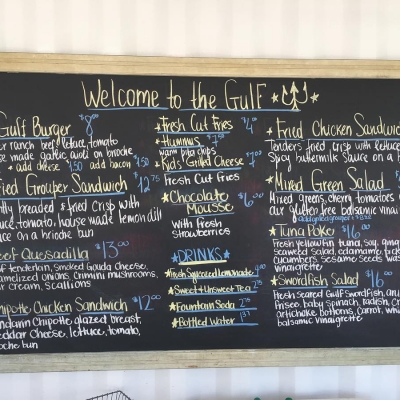 Welcome to the Gulf
Gulf Burger $8
ranch beef, lettuce, tomato
made garlic aioli on brioche
+ add cheese 1.50 add bacon 1.50
Grouper Sandwich $12.75
breaded & fried crisp with
tomato, house made lemon dill
on a brioche bun
Quesadilla $13.00
tenderloin, smoked Gouda cheese,
onions, mushrooms,
cream, scallions
Chicken Sandwich $12.00
Chipotle, glazed breast,
Cheese, lettuce, tomato,
bun
Fresh Cut Fries $4
Hummus
warm pita chips
Kid's Grilled Cheese $7.00
Fresh Cut Fries
Chocolate Mousse $6.00
with Fresh
strawberries
DRINKS
Fresh Squeezed Lemonade
Sweet & Unsweet Tea
Fountain Soda
Bottled Water
Fried Chicken Sandwich
Tenders fried crisp with
buttermilk sauce on a
Mixed Green Salad
Mixed greens, cherry tomatoes
our gluten free balsamic
Tuna Poke $16.00
Fresh Yellowfin tuna, soy,
seaweed salad, edamame,
cucumbers, sesame seeds
vinaigrette
Swordfish Salad $16
Fresh seared Gulf Swordfish,
Frisee, baby Spinach, radish,
artichoke bottoms, Carrot,
balsamic vinaigrette